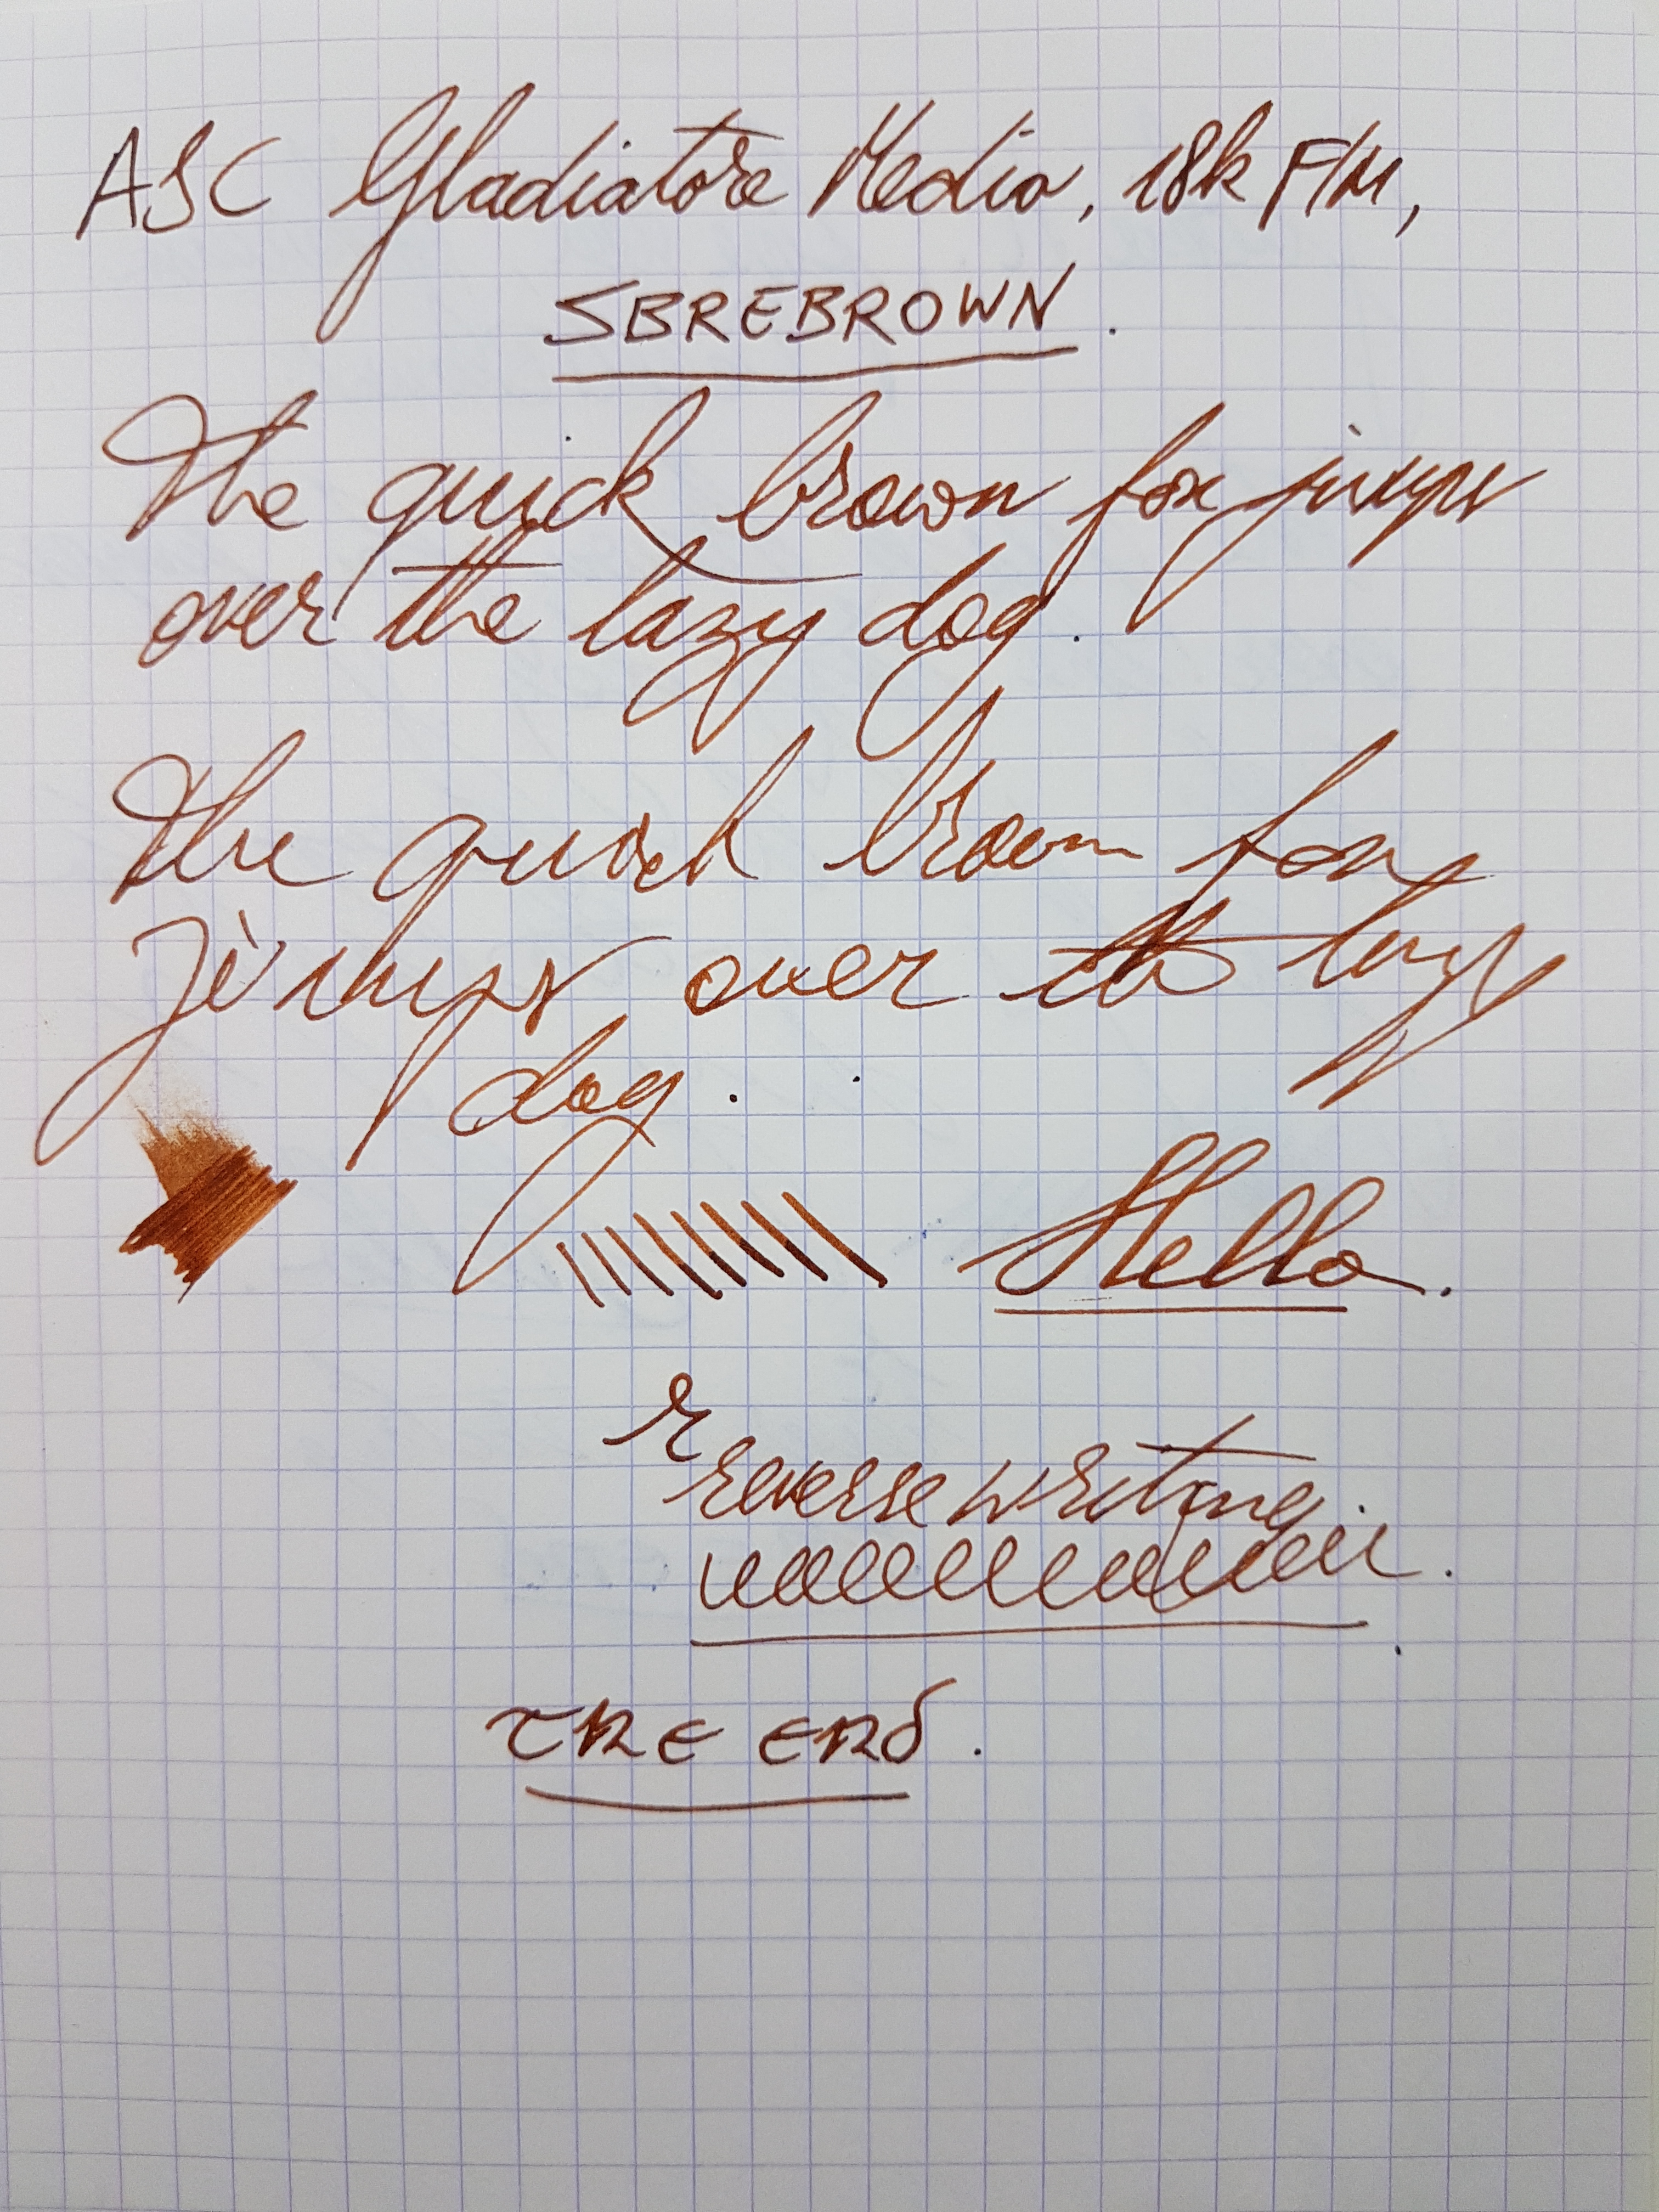 ASC Gladiatore Medio, 18k F/M,
SBREBROWN.
The quick brown fox jumps
over the lazy dog.
The quick brown fox
jumps over the lazy
dog.
Hello.
r
reverse writing
THE END.